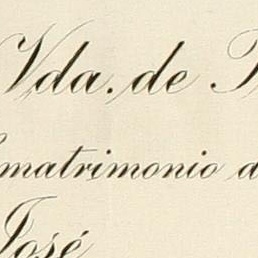 Vda. de
matrimonio
José